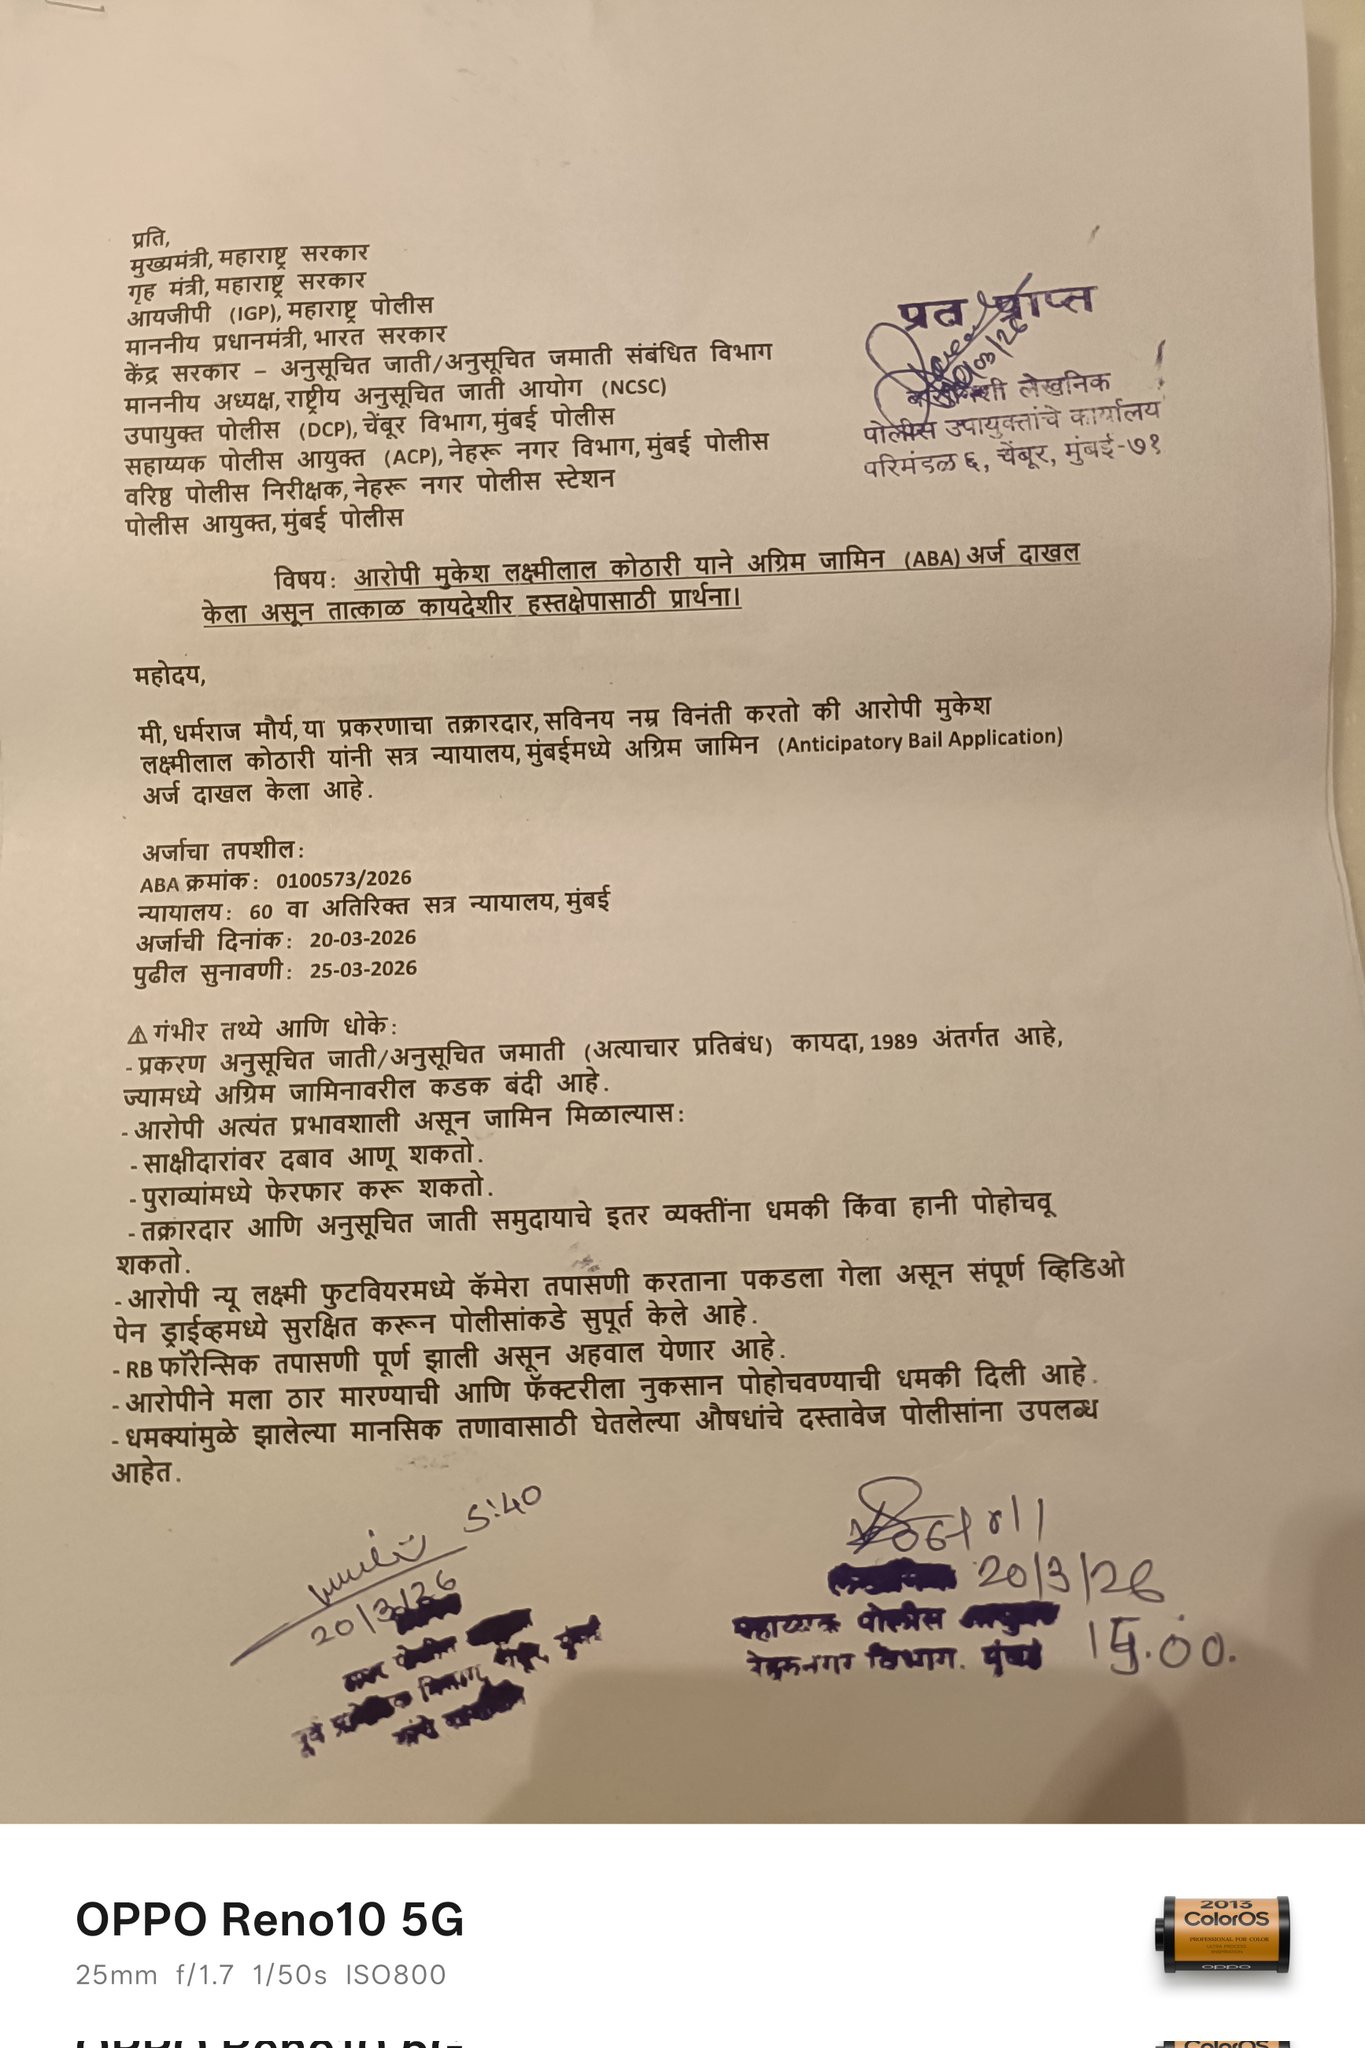 प्रति,
मुख्यमंत्री, महाराष्ट्र सरकार
गृह मंत्री, महाराष्ट्र सरकार
आयजीपी (IGP), महाराष्ट्र पोलीस
माननीय प्रधानमंत्री, भारत सरकार
केंद्र सरकार – अनुसूचित जाती/अनुसूचित जमाती संबंधित विभाग
माननीय अध्यक्ष, राष्ट्रीय अनुसूचित जाती आयोग (NCSC)
उपायुक्त पोलीस (DCP), चेंबूर विभाग, मुंबई पोलीस
सहाय्यक पोलीस आयुक्त (ACP), नेहरू नगर विभाग, मुंबई पोलीस
वरिष्ठ पोलीस निरीक्षक, नेहरू नगर पोलीस स्टेशन
पोलीस आयुक्त, मुंबई पोलीस
प्रत प्राप्त
लेखनिक
पोलीस उपायुक्तांचे कार्यालय
परिमंडळ ६, चेंबूर, मुंबई-७१
विषय: आरोपी मुकेश लक्ष्मीलाल कोठारी याने अग्रिम जामिन (ABA) अर्ज दाखल
केला असून तात्काळ कायदेशीर हस्तक्षेपासाठी प्रार्थना।
महोदय,
मी, धर्मराज मौर्य, या प्रकरणाचा तक्रारदार, सविनय नम्र विनंती करतो की आरोपी मुकेश
लक्ष्मीलाल कोठारी यांनी सत्र न्यायालय, मुंबईमध्ये अग्रिम जामिन (Anticipatory Bail Application)
अर्ज दाखल केला आहे.
अर्जाचा तपशील:
ABA क्रमांक: 0100573/2026
न्यायालय: 60 वा अतिरिक्त सत्र न्यायालय, मुंबई
अर्जाची दिनांक: 20-03-2026
पुढील सुनावणी: 25-03-2026
⚠ गंभीर तथ्ये आणि धोके:
- प्रकरण अनुसूचित जाती/अनुसूचित जमाती (अत्याचार प्रतिबंध) कायदा, 1989 अंतर्गत आहे,
ज्यामध्ये अग्रिम जामिनावरील कडक बंदी आहे.
- आरोपी अत्यंत प्रभावशाली असून जामिन मिळाल्यास:
- साक्षीदारांवर दबाव आणू शकतो.
- पुराव्यांमध्ये फेरफार करू शकतो.
- तक्रारदार आणि अनुसूचित जाती समुदायाचे इतर व्यक्तींना धमकी किंवा हानी पोहोचवू
शकतो.
- आरोपी न्यू लक्ष्मी फुटवियरमध्ये कॅमेरा तपासणी करताना पकडला गेला असून संपूर्ण व्हिडिओ
पेन ड्राईव्हमध्ये सुरक्षित करून पोलीसांकडे सुपूर्त केले आहे.
- RB फॉरेन्सिक तपासणी पूर्ण झाली असून अहवाल येणार आहे.
- आरोपीने मला ठार मारण्याची आणि फॅक्टरीला नुकसान पोहोचवण्याची धमकी दिली आहे.
- धमक्यांमुळे झालेल्या मानसिक तणावासाठी घेतलेल्या औषधांचे दस्तावेज पोलीसांना उपलब्ध
आहेत.
5:40
20/3/26
20/3/26
सहाय्यक पोलीस
नेहरूनगर विभाग, मुंबई
OPPO Reno10 5G
25mm f/1.7 1/50s ISO800
2013
ColorOS
PROFESSIONAL FOR COLOR
OPPO
OPPO Reno10 5G
ColorOS